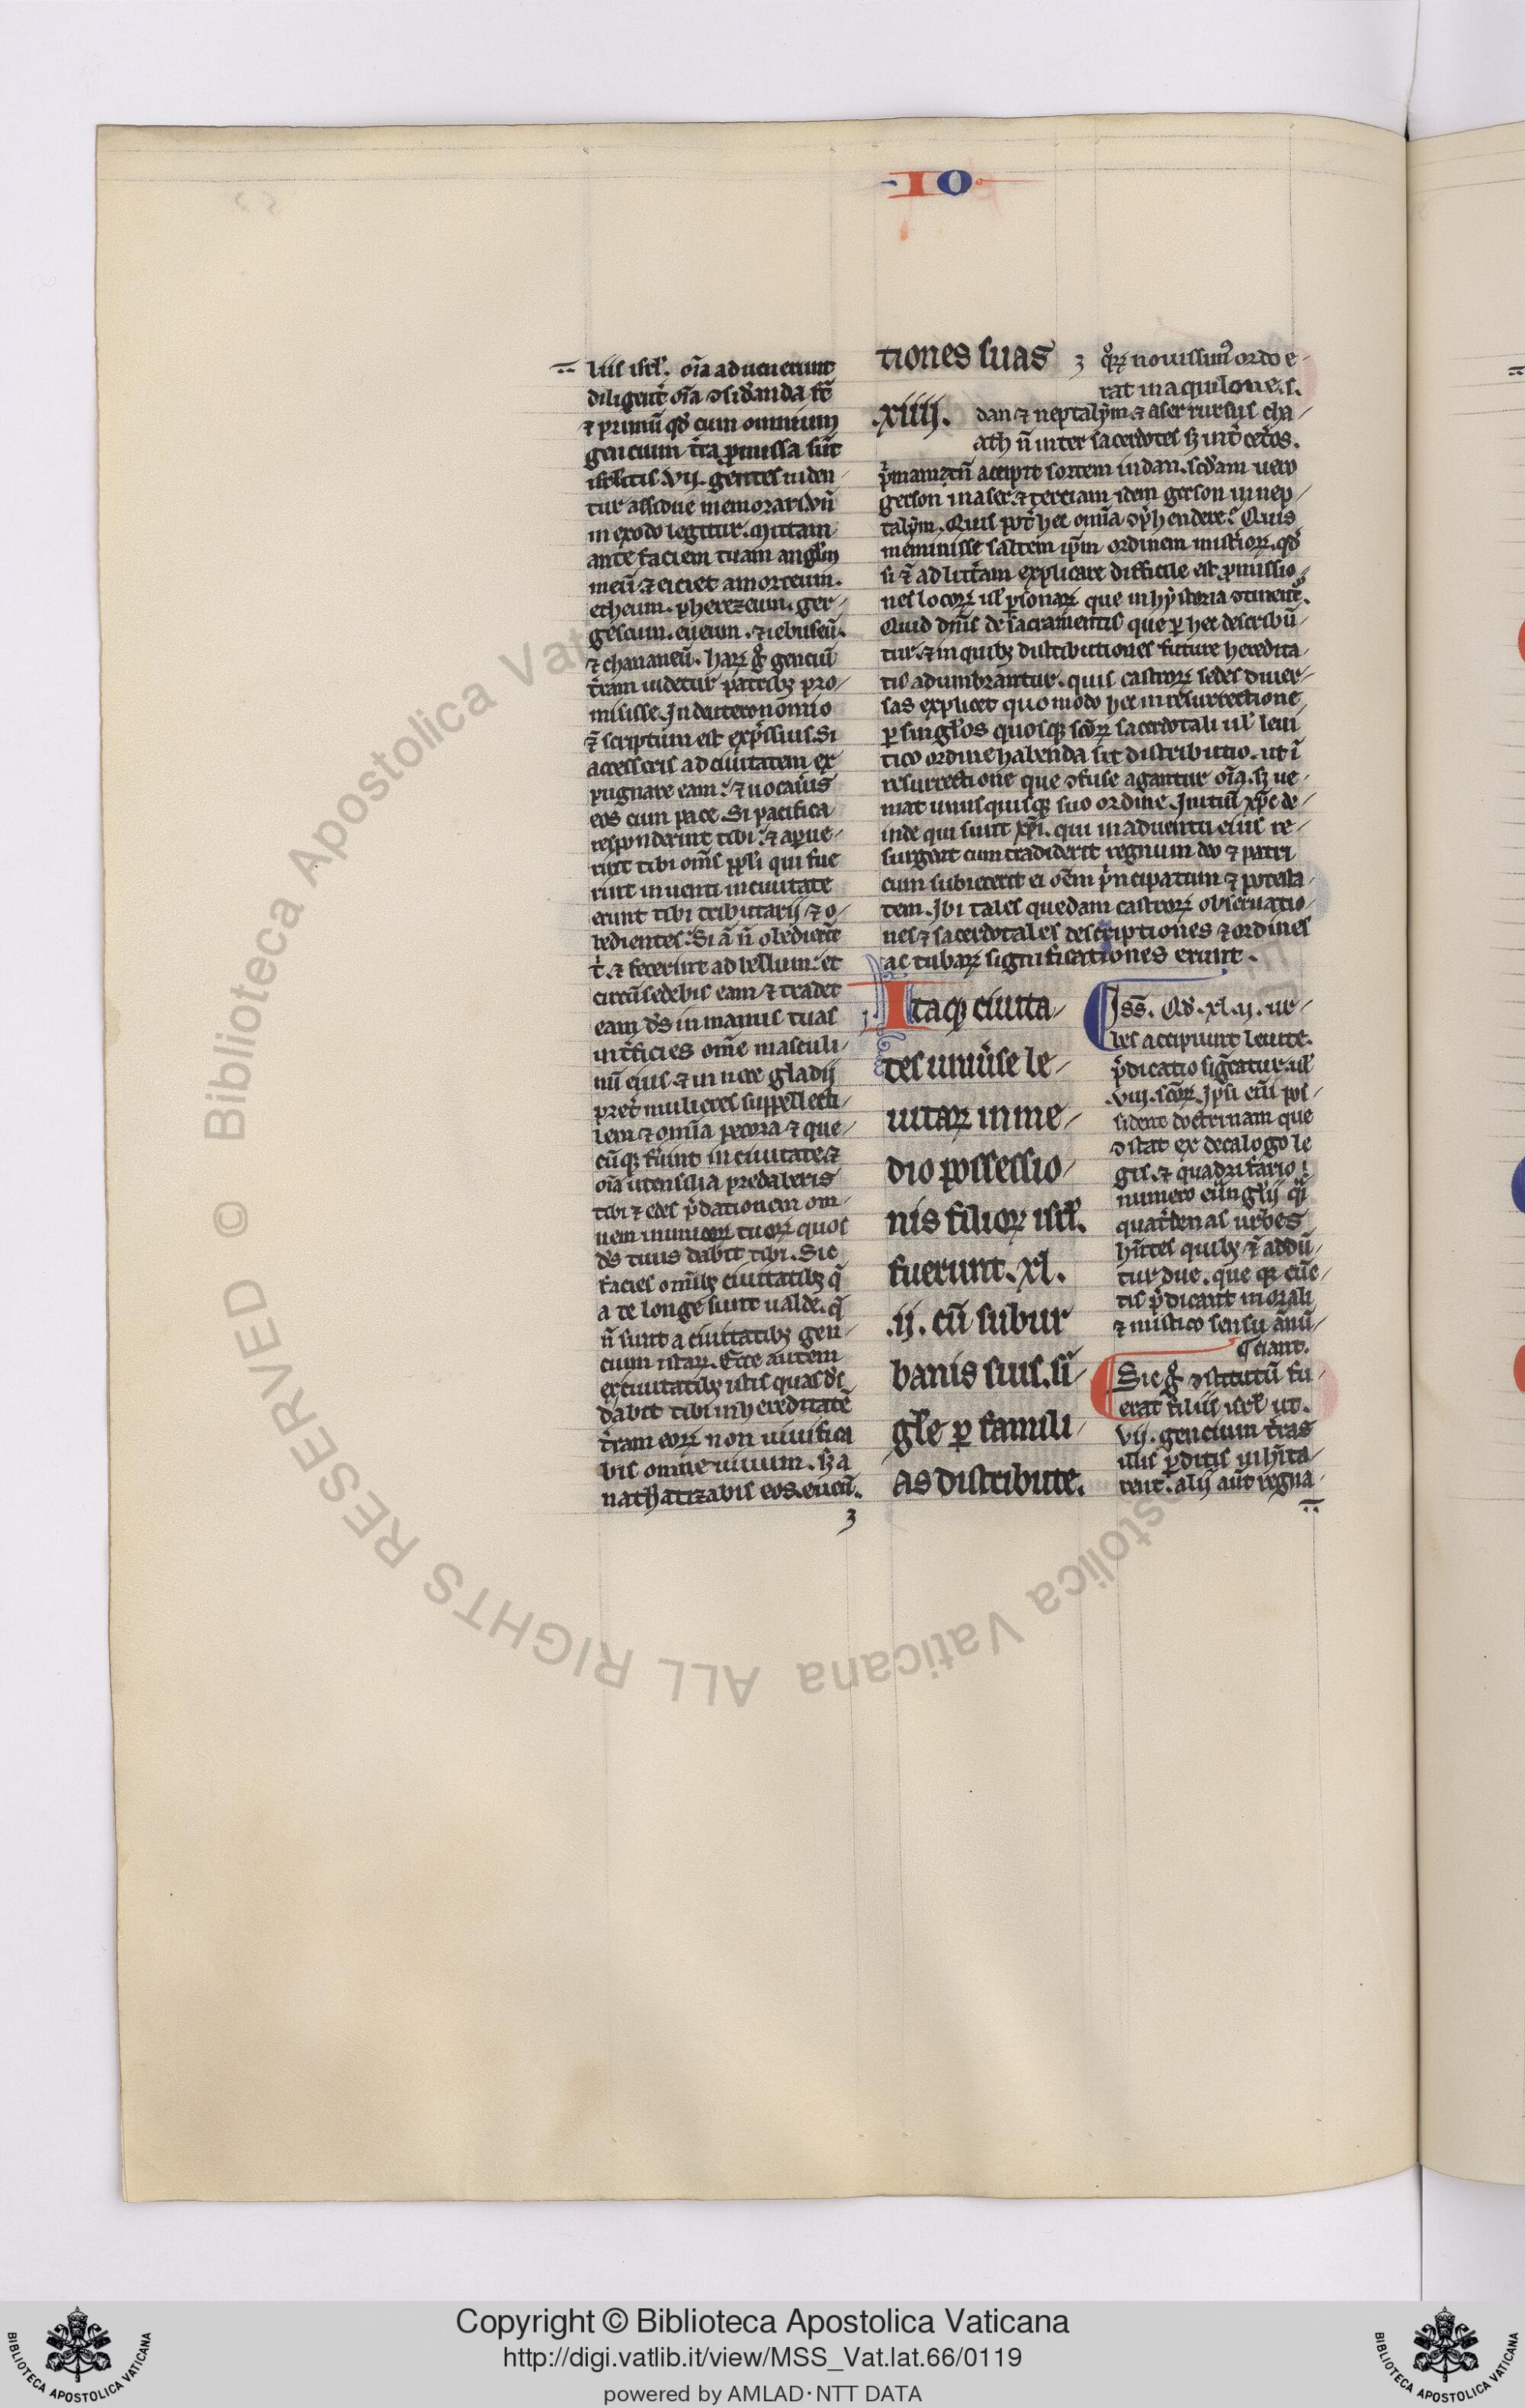 ·IO·
liis isrl'. oīa aduenerunt
diligent̄ oīa ꝯsid̄anda st̄
⁊ primū qd̄ cum omnium
gencium t̄ra ꝓmissa sūt
isrl'itis. vij. gentes uiden-
tur assidue memorari. vn̄
in exodo legitur. Mittam
ante faciem tuam angl'm
meū. ⁊ eiciet amorreum.
etheum. pherezeum. ger-
geseum. eueum. ⁊ iebuseū.
⁊ chananeū. haꝝ g̊ genciū
t̄ram uidetur patribꝫ pro-
misisse. In deuteronomio
⁊̄ scriptum est exp̄ssius. Si
accesseris ad ciuitatem ex
pugnare eam: ⁊ uocau̓is
eos cum pace. Si pacifica
responderint tibi: ⁊ aperue-
rint tibi om̄s pp̄l'i qui fue
rint inuenti in ciuitate
erunt tibi tributarij ⁊ o-
bedientes: Si ā n̄ obedierīt
t̓. ⁊ fecerint ad bellum: et
circūsedebis eam ⁊ tradet
eam d̄s in manus tuas
int̄ficies om̄e masculi-
nū eius ⁊ in nece gladij
pret̄ mulieres suppellecti-
lem ⁊ omīa pecora ⁊ que-
cūqꝫ fu̓int in ciuitate. ⁊
oīa utensilia predaberis
tibi ⁊ edes p̄dationem om-
nem inimicoꝝ tuoꝝ quos
d̄s tuus dabit tibi. Sic
facies om̄ibꝫ ciuitatibꝫ q̄
a te longe sunt ualde. q̄
n̄ sunt a ciuitatibꝫ gen-
cium istaꝝ. Ecce autem
ex ciuitatibꝫ istis quas d̄s
dabit tibi in hereditatē
t̄ram eoꝝ non uiuifica
bis omne uiuum. sꝫ a
nathatizabis eos. eueū.
tiones suas
.xiiij.
qͦꝝ nouissim᷒ ordo e-
rat in aquilone. s.
dan ⁊ neptalym. ⁊ aser rursus cha-
ath n̄ inter sacerdotes sꝫ int̄ cet̄os.
p̓mam ⁊n̄ accipit sortem in dan. scd̄am uero
gerson in aser. ⁊ terciam idem gerson in nep-
talym. Quis pot̄ hec omīa ꝯp̓hendere? Quis
meminisse saltem ip̄m ordinem mistioꝝ. qd̄
si ⁊̄ ad litt̄am explicare difficile est ꝓmissio-
nes locoꝝ ul' ꝑsonaꝝ que in hystoria ꝯtinent̄.
Quid dn̄s de sacramentis que ꝑ hec describū-
tur. ⁊ in quibꝫ distributiones future heredita-
tis adumbrantur. quis castroꝝ sedes diuer-
sas explicet quomodo hec in resurrectione
ꝑ singl'os quosqꝫ sc̄oꝝ sacerdotali ul' leui
tico ordine habenda sit distributio. ut ī
resurrectione que ꝯfuse agantur oīa. sꝫ ue-
niat unusquisqꝫ suo ordine. Initiū xp̄c de-
inde qui sunt xp̄i. qui in aduentu eius re-
surgent cum tradiderit regnum deo ⁊ patri
cum subiecerit ei oēm p̓ncipatum ⁊ potesta-
tem. Ibi tales quedam castroꝝ obseruatio-
nes ⁊ sacerdotales descriptiones ⁊ ordines
ac tubaꝝ significationes erunt.
Itaqꝫ ciuita-
tes uniu̓se le-
uitaꝝ in me-
dio possessio-
nis filioꝝ isrl'.
fuerunt. xl.
.ij. cū subur
banis suis. sī-
gl'e ꝑ famili-
as distribute.
Iss̄. Qd̄. xl. ij. ur-
bes accipiunt leuite.
p̓dicatio sig̅catur. ul'
.viij. sc̄oꝝ. Ip̄si eni᷒ pos-
sident doctrinam que
ꝯstat ex decalogo le
gis. ⁊ quadrifario
numero eūngl'ij q̓
quat̓denas urbes
hn̄tes quibꝫ ⁊̄ addū-
tur due. que qꝫ cūc-
tis p̓dicant morali
⁊ mistico sensu ānū-
ciant.
Sic g̊ ꝯstitutū fu-
erat filiis isrl' ut.
vij. gencium t̄ras
illis ꝑditis inhīta-
rent. alij aut̄ regna-